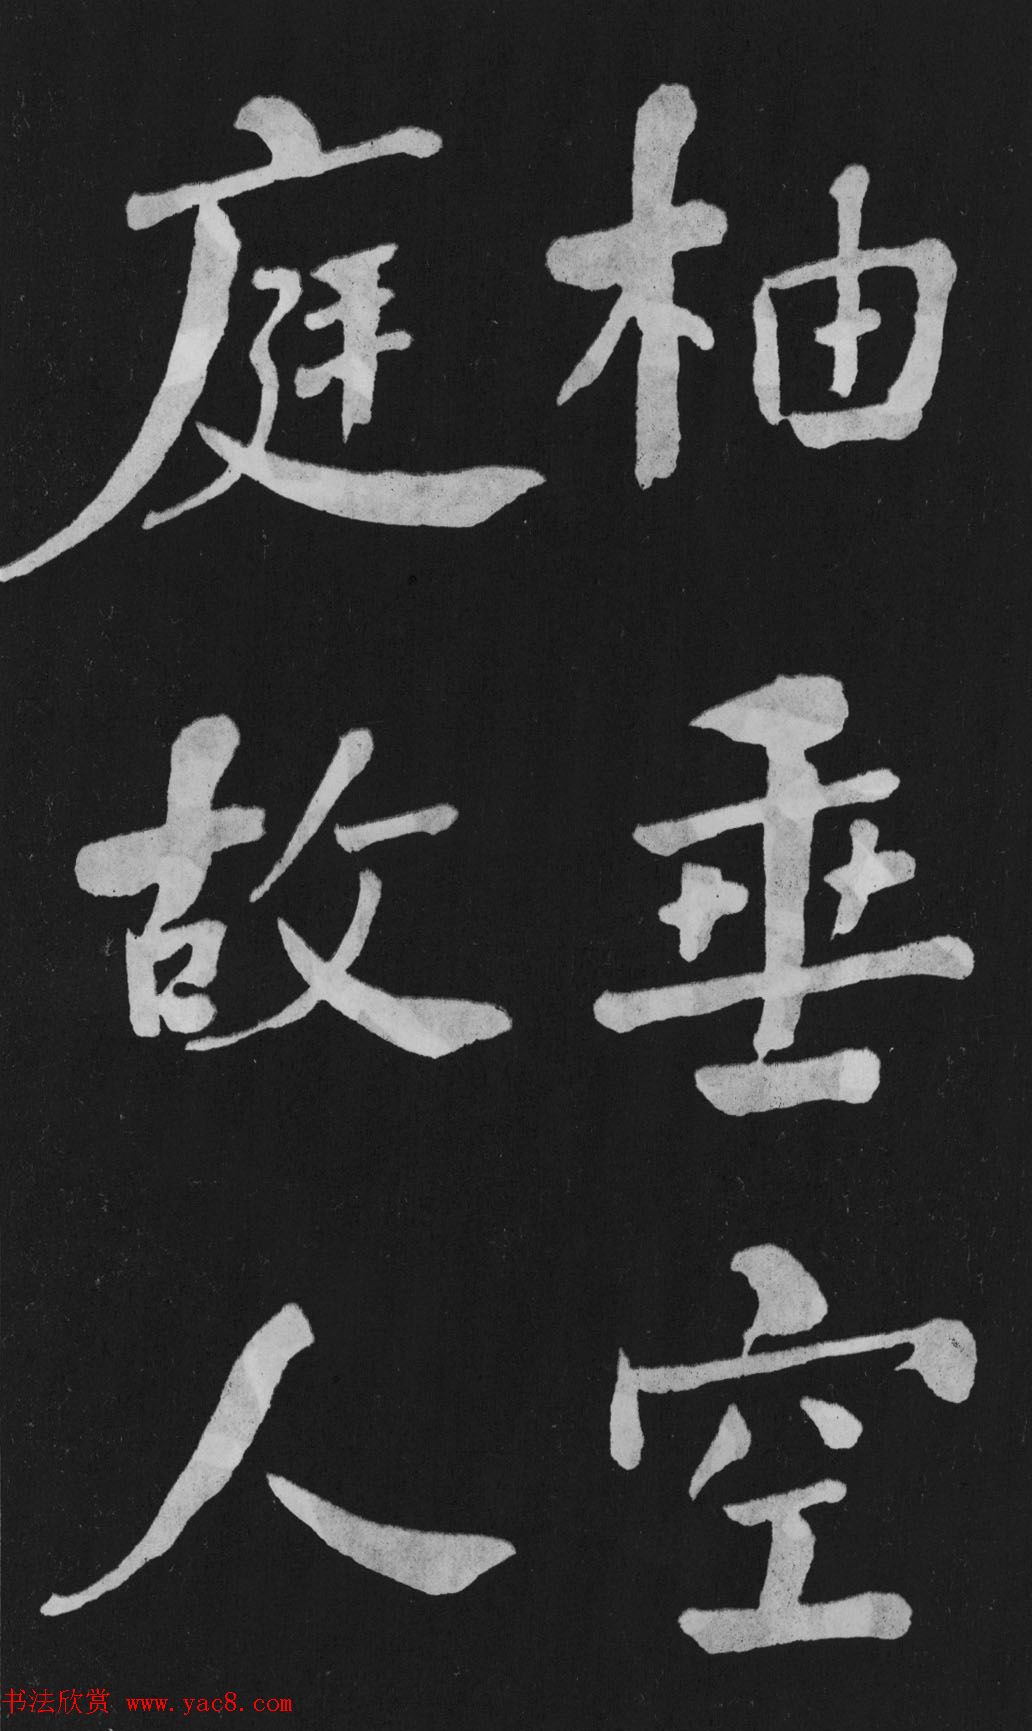 柚垂空
庭故人
书法欣赏 www.yac8.com